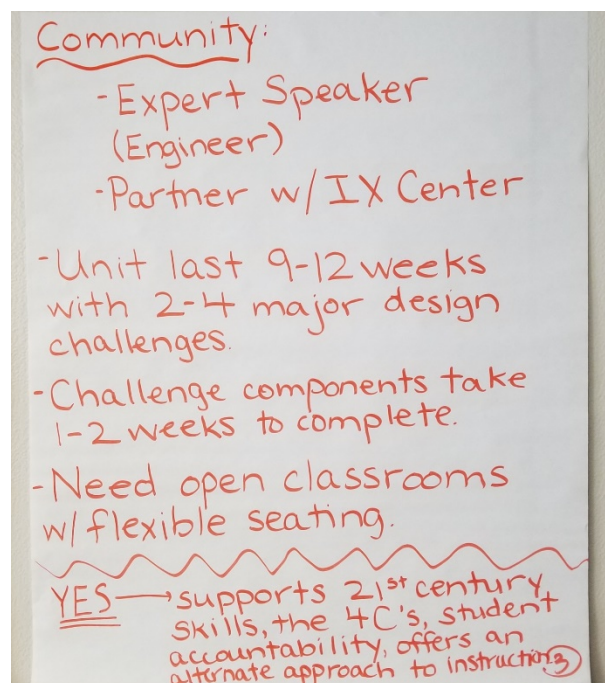 Community:
- Expert Speaker
(Engineer)
- Partner w/ IX Center
- Unit last 9-12 weeks
with 2-4 major design
challenges.
- Challenge components take
1-2 weeks to complete.
- Need open classrooms
w/ flexible seating.
YES → supports 21st century
skills, the 4C's, student
accountability, offers an
alternate approach to instruction.
3